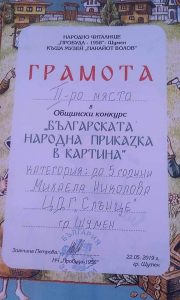 НАРОДНО ЧИТАЛИЩЕ
"ПРОБУДА - 1958" Шумен
КЪЩА МУЗЕЙ "ПАНАЙОТ ВОЛОВ"
ГРАМОТА
II-ро място
в
Общински конкурс
"БЪЛГАРСКАТА
НАРОДНА ПРИКАЗКА
В КАРТИНА"
категория: до 5 години
Михаела Николова
ЦДГ "Слънце"
гр. Шумен
Златина Петрова
НЧ "Пробуда 1958"
22.05.2013 г.
гр. Шумен